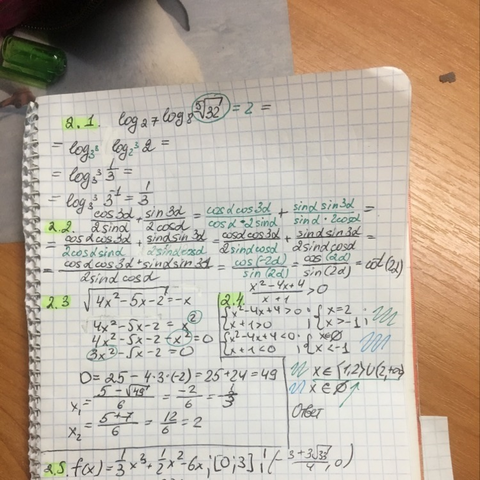 2.1 log₂₇ log₈ ⁵√32 = 2 =
= log₃³ log₂³ 2 =
= log₃³ 1/3 =
= log₃³ 3⁻¹ = 1/3
2.2. cosα cos3α / 2sinα + sin3α / 2cosα = cosα cos3α / cosα · 2sinα + sinα sin3α / sinα · 2cosα =
= cosα cos3α / 2cosα sinα + sinα sin3α / 2sinα cosα = cosα cos3α / 2sinα cosα + sinα sin3α / 2sinα cosα =
= cosα cos3α + sinα sin3α / 2sinα cosα = cos(-2α) / sin(2α) = cos(2α) / sin(2α) = cot(2α)
2.3 √4x²-5x-2 = -x
4x² - 5x - 2 = x²
4x² - 5x - 2 - x² = 0
3x² - 5x - 2 = 0
D = 25 - 4·3·(-2) = 25 + 24 = 49
x₁ = 5 - √49 / 6 = -2 / 6 = -1/3
x₂ = 5 + 7 / 6 = 12 / 6 = 2
2.4 x²-4x+4 / x+1 > 0
{x²-4x+4>0 ; {x=2
{x+1>0 ; {x>-1 ;
{x²-4x+4<0 ; {x=∅
{x+1<0 ; {x<-1
x∈(-1,2)∪(2,+∞)
x∈∅
Ответ
2.5. f(x) = 1/3 x³ + 1/2 x² - 6x ; [0;3] ;